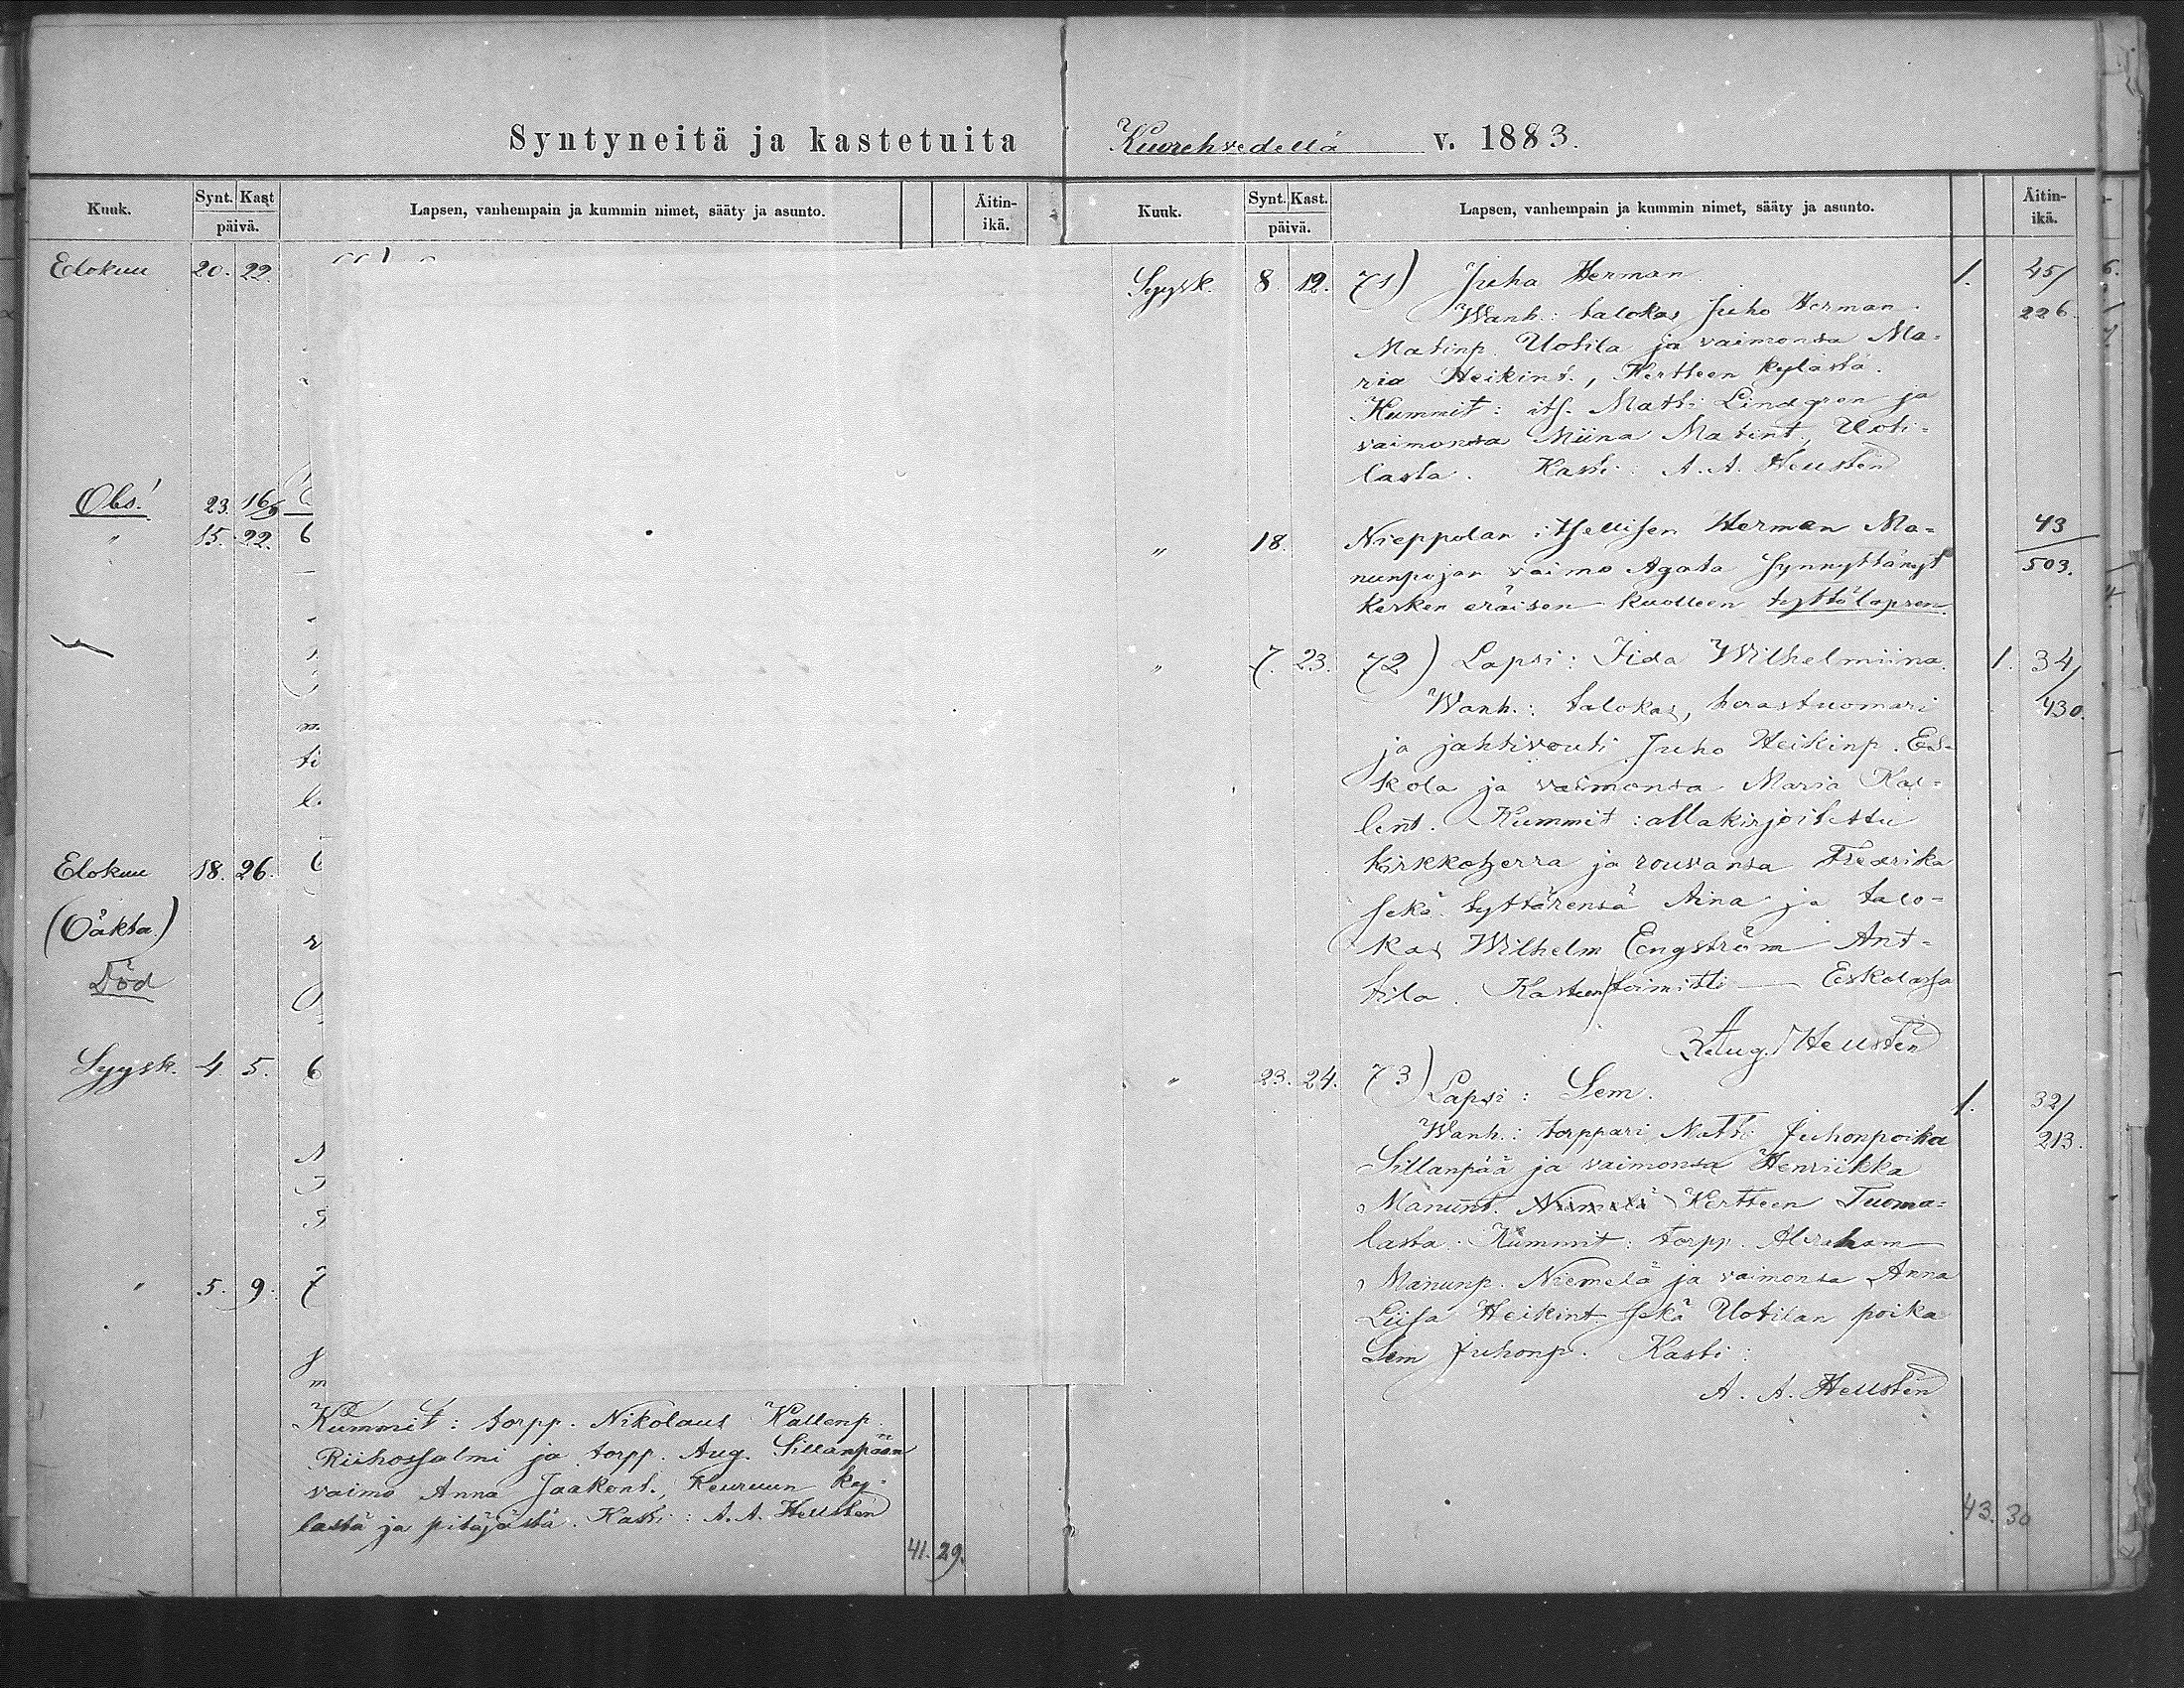 Syntyneitä ja kastetuita
Kuorehvedellä v. 1883.
Kuuk.
Synt. Kast
päivä.
Lapsen, vanhempain ja kummin nimet, sääty ja asunto.
Äitin-
ikä.
Elokuu 20. 22.
Obs! 23. 16/9
" 15. 22. 6
m.
ti
l.
Elokuu 18. 26. 6
(Oäkta.)
Död
Syysk. 4 5. 6
" 5. 9. 7
m
Kummit: torpp. Nikolaus Kallenp.
Riihossalmi ja torpp. Aug. Sillanpään
vaimo Anna Jaakont., Keuruun ky-
lästä ja pitäjästä. Kasti: A. A. Hellstén
41. 29.
Kuuk.
Synt. Kast.
päivä.
Lapsen, vanhempain ja kummin nimet, sääty ja asunto.
Äitin-
ikä.
Syysk. 8. 12. 71) Juha Herman 1. 45/
Wanh.: talokas Juho Herman 226.
Matinp. Uotila ja vaimonsa Ma-
ria Heikint., Kertteen kylästä.
Kummit: its. Matti Lindgren ja
vaimonsa Miina Matint., Uoti-
lasta. Kasti: A. A. Hellstén
" 18. Nieppolan itsellisen Herman Ma- 43
nunpojan vaimo Agata synnyttänyt 503.
kesken eräisen kuolleen tyttölapsen.
" 7. 23. 72) Lapsi: Iida Wilhelmiina. 1. 34/
Wanh.: talokas, herastuomari 430.
ja jahtivouti Juho Heikinp. Es-
kola ja vaimonsa Maria Kal-
lent. Kummit: allakirjoitettu
kirkkoherra ja rouvansa Fredrika
sekä tyttärensä Aina ja talo-
kas Wilhelm Engström Ant-
tila. Kasteen toimitti — Eskolassa
Aug. Hellstén
" 23. 24. 73) Lapsi: Sem. 1. 32/
Wanh.: torppari Matti Juhonpoika 213.
Sillanpää ja vaimonsa Henriikka
Manunt. Niemelä Kertteen Tuoma-
lasta. Kummit: torpp. Abraham
Manunp. Niemelä ja vaimonsa Anna
Liisa Heikint. sekä Uotilan poika
Sem Juhonp. Kasti:
A. A. Hellstén
43. 30